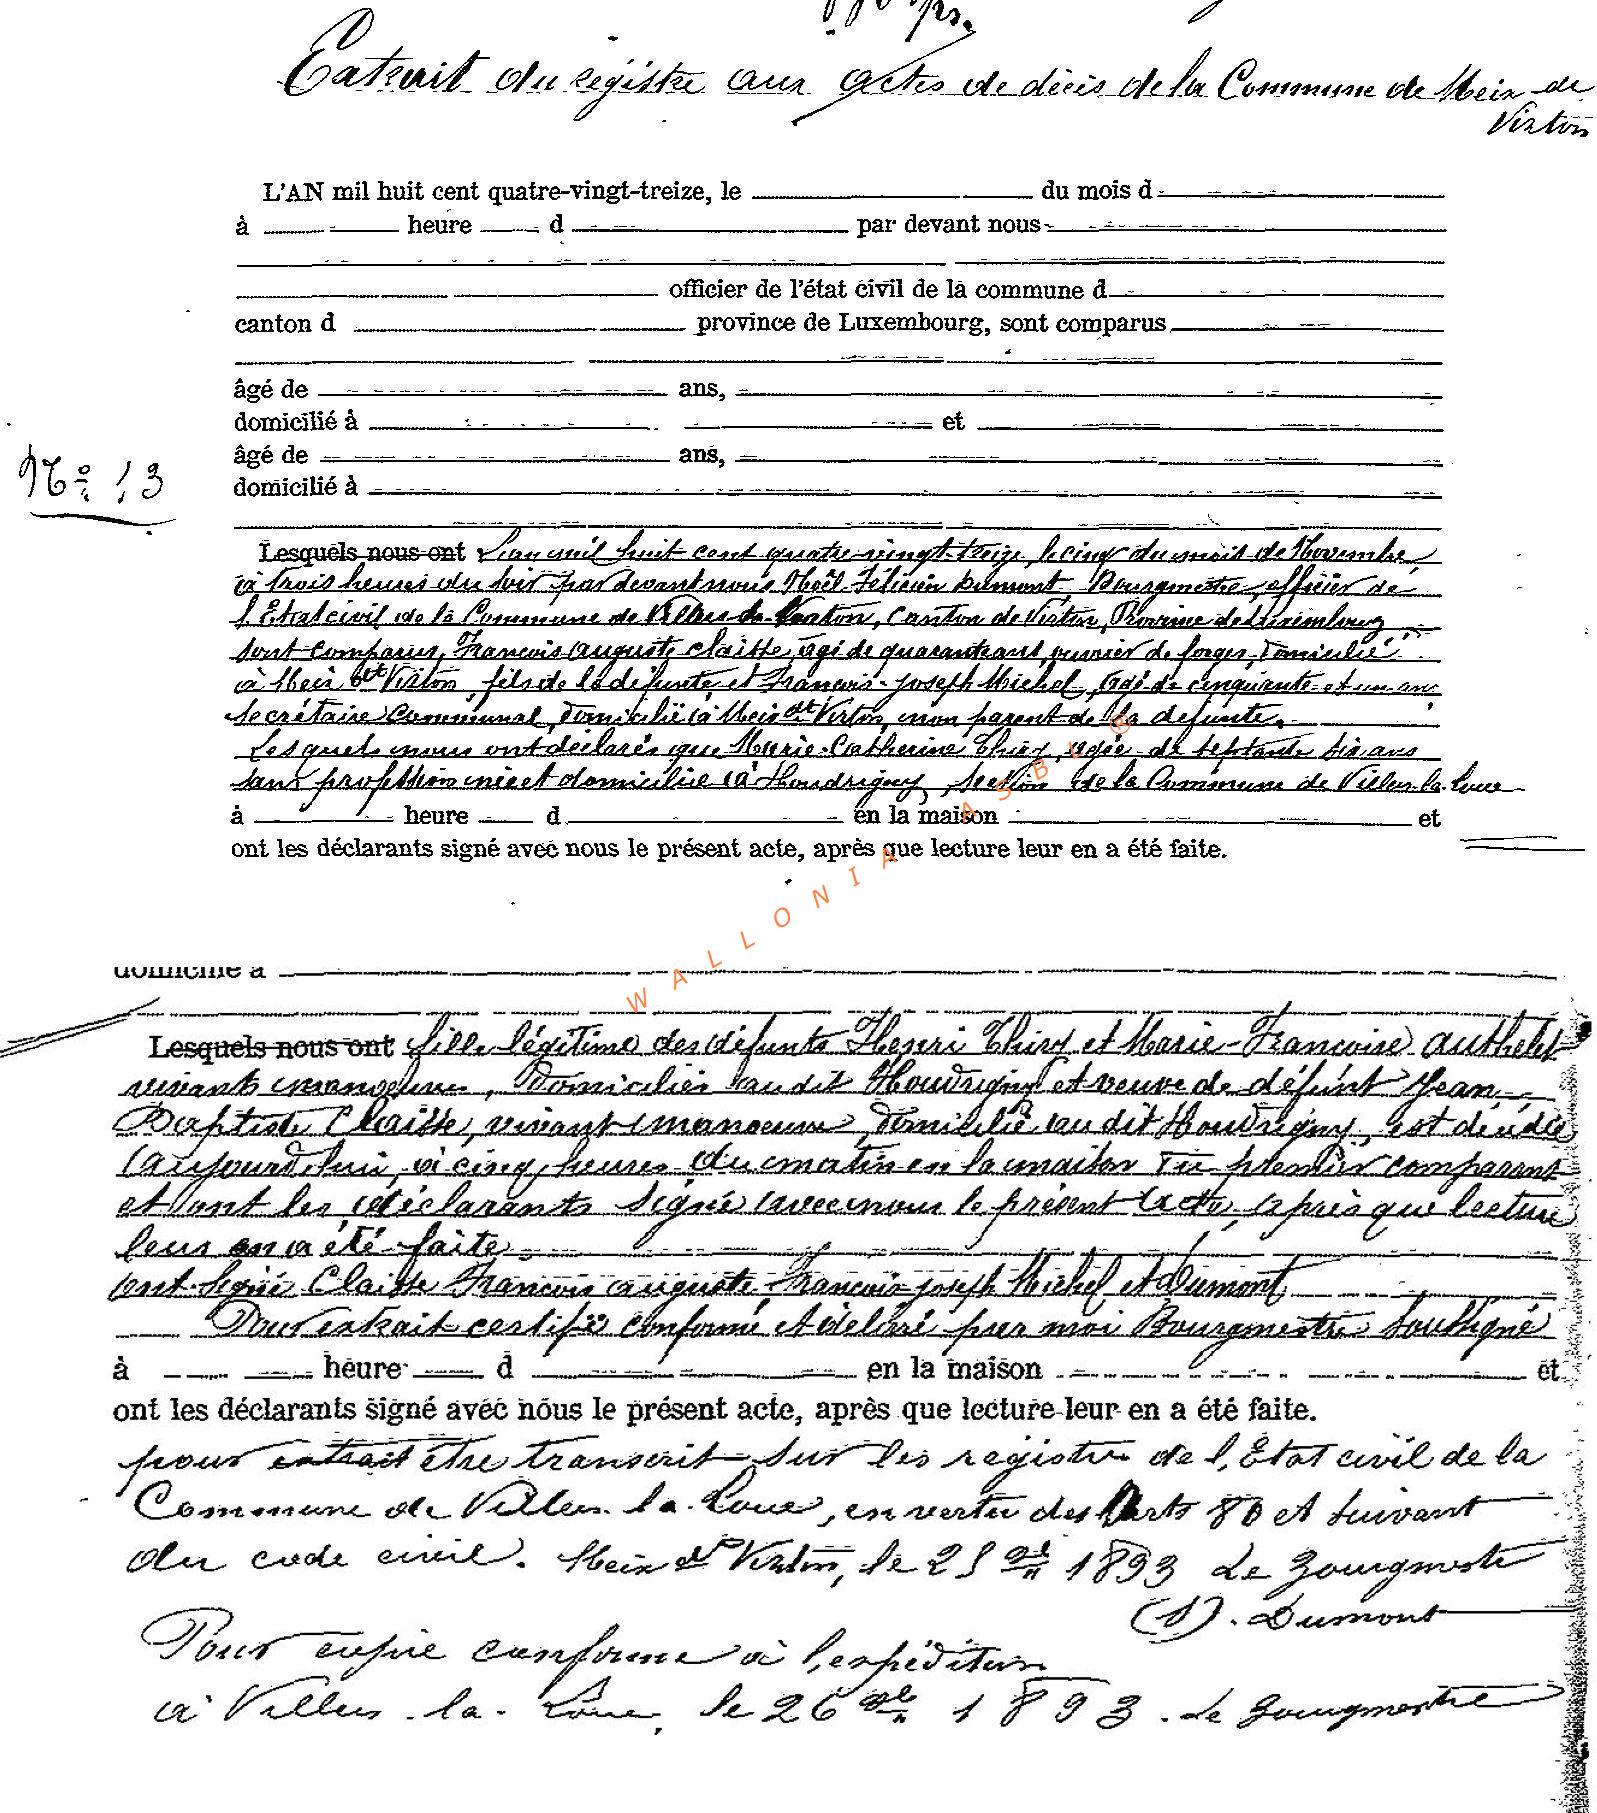 Extrait du registre aux actes de décès de la Commune de Meix-de
Virton
L'AN mil huit cent quatre-vingt-treize, le du mois d
à heure d par devant nous
officier de l'état civil de la commune d
canton d province de Luxembourg, sont comparus
âgé de ans,
domicilié à et
âgé de ans,
Nº 13
domicilié à
Lesquels nous ont L'an mil huit cent quatre-vingt-treize, le cinq du mois de Novembre,
à trois heures du soir par devant nous Noël Félicien Dumont, Bourgmestre, officier de
l'Etat civil de la Commune de Virton, Canton de Virton, Province de Luxembourg
sont comparus, François Auguste Claisse, âgé de quarante ans, ouvrier de forges, domicilié
à Meix dt Virton, fils de la défunte, et François-Joseph Michel, âgé de cinquante et un ans
secrétaire communal, domicilié à Meix dt Virton, non parent de la défunte.
Lesquels nous ont déclarés que Marie-Catherine Thiry, agée de septante six ans
sans profession née et domiciliée à Houdrigny, section de la Commune de Villers-la-Loue
à heure d en la maison et
ont les déclarants signé avec nous le présent acte, après que lecture leur en a été faite.
WALLONIA ASBL ®
domicilié à
Lesquels nous ont fille légitime des défunts Henri Thiry et Marie-Françoise Authelet
vivants manœuvres, domiciliés au dit Houdrigny et veuve de défunt Jean
Baptiste Claisse, vivant manœuvre, domicilié au dit Houdrigny, est décédée
aujourd'hui, à cinq heures du matin en la maison du premier comparant
et ont les déclarants signé avec nous le présent acte, après que lecture
leur en a été faite
ont signé Claisse François Auguste, François-Joseph Michel et Dumont
Pour extrait certifié conforme et délivré par moi Bourgmestre soussigné
à heure d en la maison et
ont les déclarants signé avec nous le présent acte, après que lecture leur en a été faite.
pour extrait être transcrit sur les registres de l'Etat civil de la
Commune de Villers-la-Loue, en vertu des Arts 80 et suivant
du code civil. Meix dt Virton, le 25 1893 Le Bourgmestre
(S). Dumont
Pour copie conforme à l'expédition
à Villers-la-Loue, le 26 1893. Le Bourgmestre